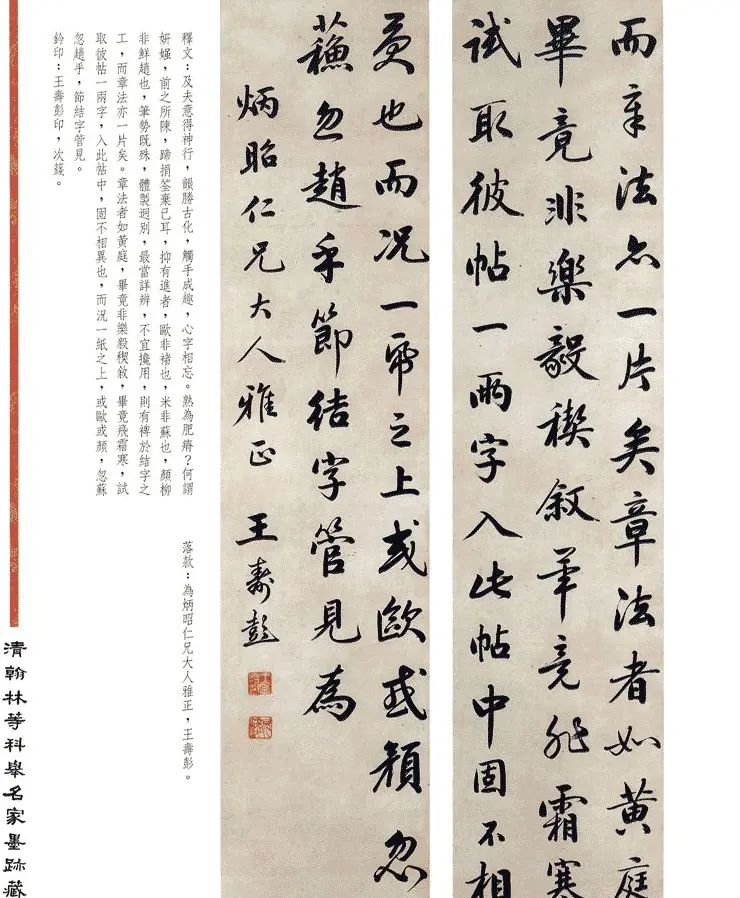 而章法亦一片矣章法者如黄庭
畢竟非樂毅稧叙畢竟非霜寒
試取彼帖一兩字入此帖中固不相
異也而况一帋之上或歐或顏忽
蘓忽趙乎節結字管見為
炳昭仁兄大人雅正 王壽彭
釋文：及夫意得神行，韻勝古化，觸手成趣，心字相忘。熟為肥瘠？何謂
妍媸，前之所陳，蹄捐筌棄已耳，抑有進者，歐非褚也，米非蘇也，顏柳
非鮮趙也，筆勢既殊，體製迥別，最當詳辨，不宜攙用，則有裨於結字之
工，而章法亦一片矣。章法者如黄庭，畢竟非樂毅稧敘，畢竟飛霜寒，試
取彼帖一兩字，入此帖中，固不相異也，而況一紙之上，或歐或顏，忽蘇
忽趙乎，節結字管見。
鈐印：王壽彭印，次籛。
落款：為炳昭仁兄大人雅正，王壽彭。
清翰林等科舉名家墨跡藏